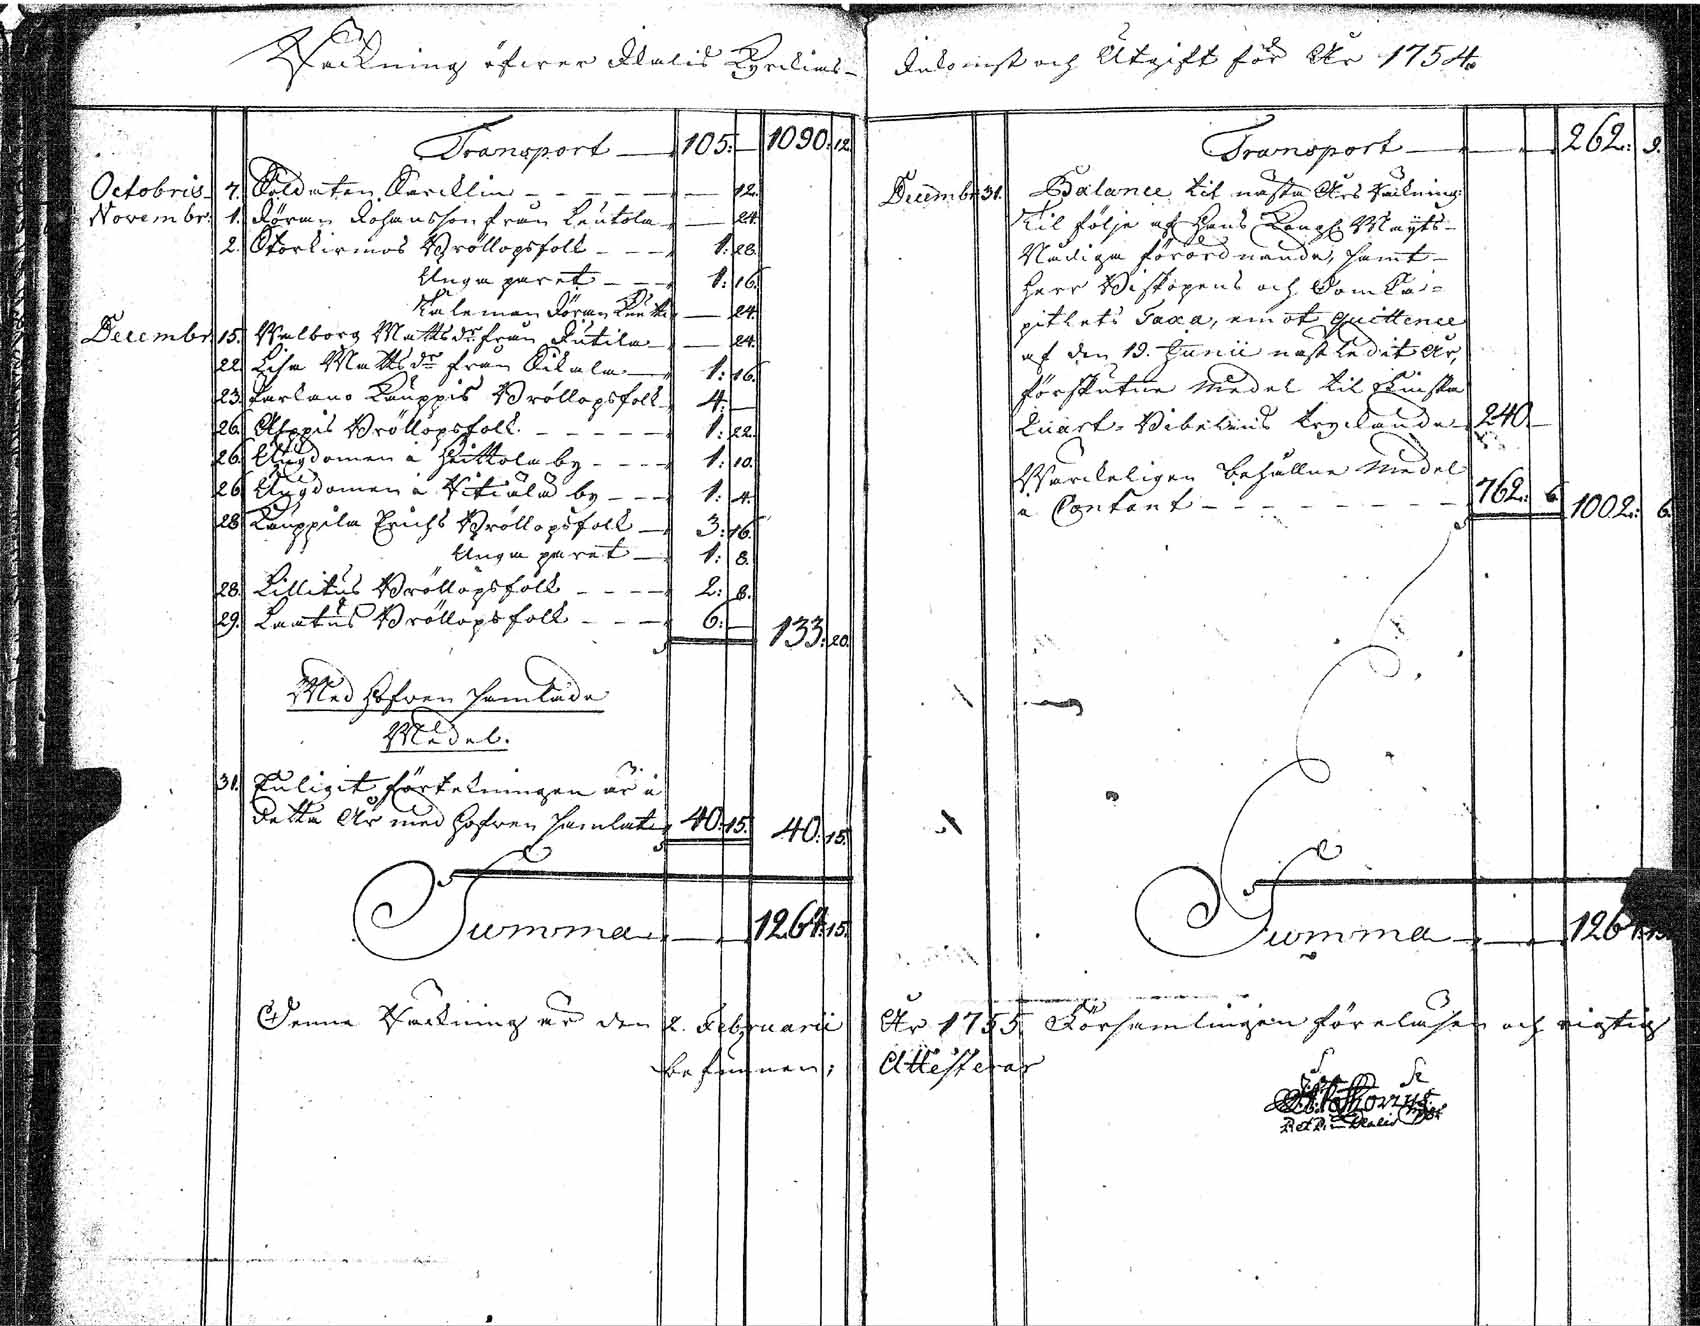 Räkning öfwer Ikalis Kyrckias-
Transport 105:— 1090: 12
Octobris 7. Soldaten — 12.
Novembr: 1. Jöran Johansson från Leutola — 24
2. Storkirmos Bröllopsfolk 1: 28.
Unga paret 1: 16.
Taleman Jöran — 24.
Decembr 15. Walborg Matts dr från Jutila — 24.
22. Lisa Matts dr från Sikala 1: 16.
23. Kauppis Bröllopsfolk 4: —
26. Bröllopsfolk 1: 22.
26. Ungdomen i Heittola by 1: 10.
26. Ungdomen i by 1: 4.
28. Kauppila Erichs Bröllopsfolk 3: 16.
Unga paret 1: 8.
28. Lillitus Bröllopsfolk 2: 8.
29. Laatus Bröllopsfolk 6: — 133: 20.
Med Hofwen samlade
Medel.
31. Enligit förtekningen är i
detta År med Hofwen samlat 40: 15. 40: 15.
Summa 1264: 15.
Denna Räkning är den 2. Februarii
befunnen;
Inkomst och Utgift för År 1754.
Transport 262: 9.
Decembr 31. Balance til nästa Års Räkning:
Til följe af Hans Kongl. Mayts-
Nådiga förordnande, samt
Herr Biskopens och DomCa-
pitlets Taxa, emot quittence
af den 19. Junii nästledit År,
förskutne Medel til Finska
Quart-Bibelens tryckande 240. —
Wärckeligen behållne Medel
i Contant 762: 6. 1002: 6.
Summa 1264: 15.
År 1755 Församlingen föreläsen och rigtig
Attesterar